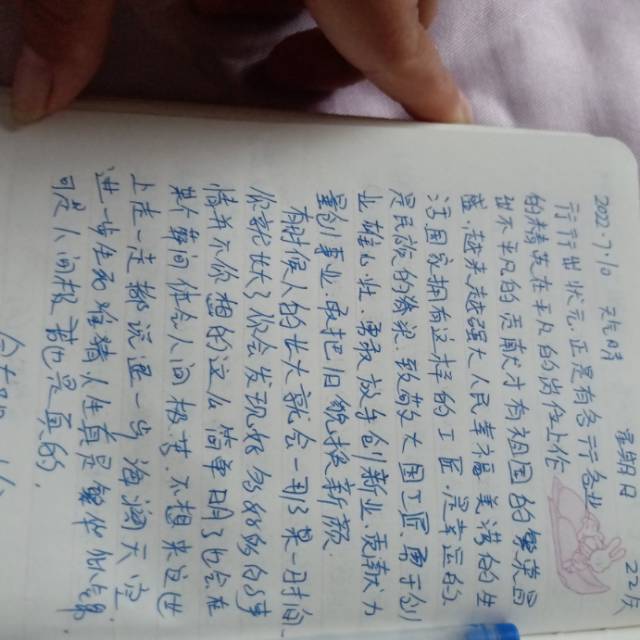 2022.7.10 天晴 星期日 21天
行行出状元.正是有各行各业
的精英在平凡的岗位上作
出不平凡的贡献才有祖国的繁荣昌
盛.越来越强大人民幸福美满的生
活国家拥有这样的工匠.是幸运的
是民族的脊梁.致敬大国工匠.勇于创
业.雄心业.勇敢放手创新业.贡献力
量创事业.要把旧貌换新颜.
有时候人的长大就会一那么某一时间.
你就长大了你会发现好多好多的事
情并不你想的这么简单明了也会在
默人每间体会人间极苦.不想来这世
上走一走都说退一步海阔天空
进一步生死难猜人生真是
可是人间极苦也是真的.